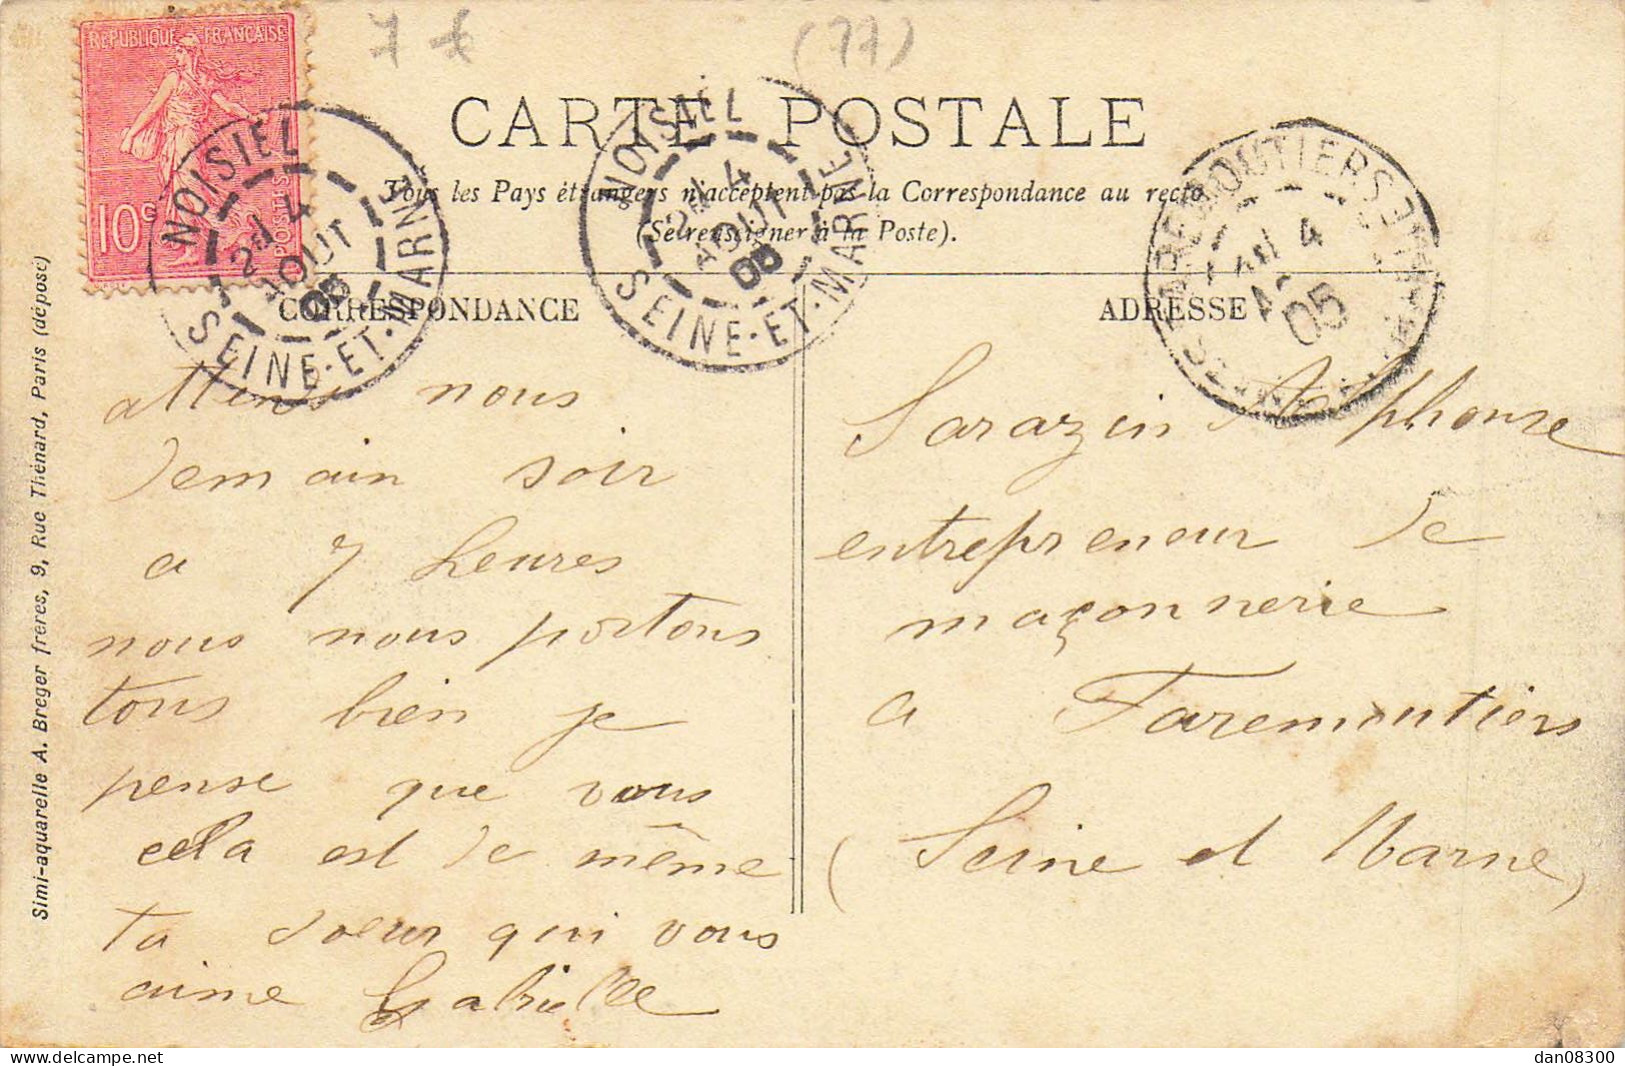 7 €
(77)
REPUBLIQUE FRANÇAISE
10c
POSTES
NOISIEL
2d 4
AOUT
05
SEINE-ET-MARNE
NOISIEL
4
AOUT
05
SEINE-ET-MARNE
FAREMOUTIERS
4
05
CARTE POSTALE
Tous les Pays étrangers n'acceptent pas la Correspondance au recto
(Se renseigner à la Poste).
CORRESPONDANCE
ADRESSE
attens nous
demain soir
a 7 heures
nous nous portons
tous bien je
pense que vous
cela est de même
ta soeur qui vous
aime Gabrielle
Sarazin Alphonse
entrepreneur de
maçonnerie
a Faremoutiers
(Seine et Marne)
Simi-aquarelle A. Breger frères, 9, Rue Thénard, Paris (déposé)
dan08300